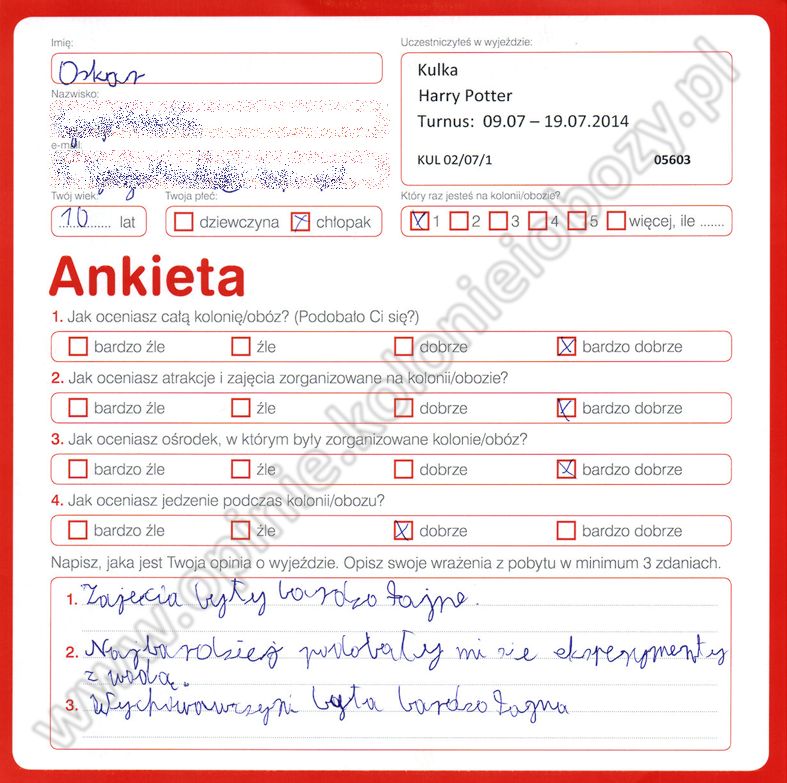 Imię:
Oskar
Nazwisko:
e-mail:
Twój wiek:
10 lat
Twoja płeć:
dziewczyna chłopak
Uczestniczyłeś w wyjeździe:
Kulka
Harry Potter
Turnus: 09.07 – 19.07.2014
KUL 02/07/1 05603
Który raz jesteś na kolonii/obozie?
1 2 3 4 5 więcej, ile .......
Ankieta
1. Jak oceniasz całą kolonię/obóz? (Podobało Ci się?)
bardzo źle źle dobrze bardzo dobrze
2. Jak oceniasz atrakcje i zajęcia zorganizowane na kolonii/obozie?
bardzo źle źle dobrze bardzo dobrze
3. Jak oceniasz ośrodek, w którym były zorganizowane kolonie/obóz?
bardzo źle źle dobrze bardzo dobrze
4. Jak oceniasz jedzenie podczas kolonii/obozu?
bardzo źle źle dobrze bardzo dobrze
Napisz, jaka jest Twoja opinia o wyjeździe. Opisz swoje wrażenia z pobytu w minimum 3 zdaniach.
1. Zajecia były bardzo fajne.
2. Najbardziej podobały mi sie eksperymenty
z wodą.
3. Wychowawczyni była bardzo fajna
www.opinie.kolonieiobozy.pl